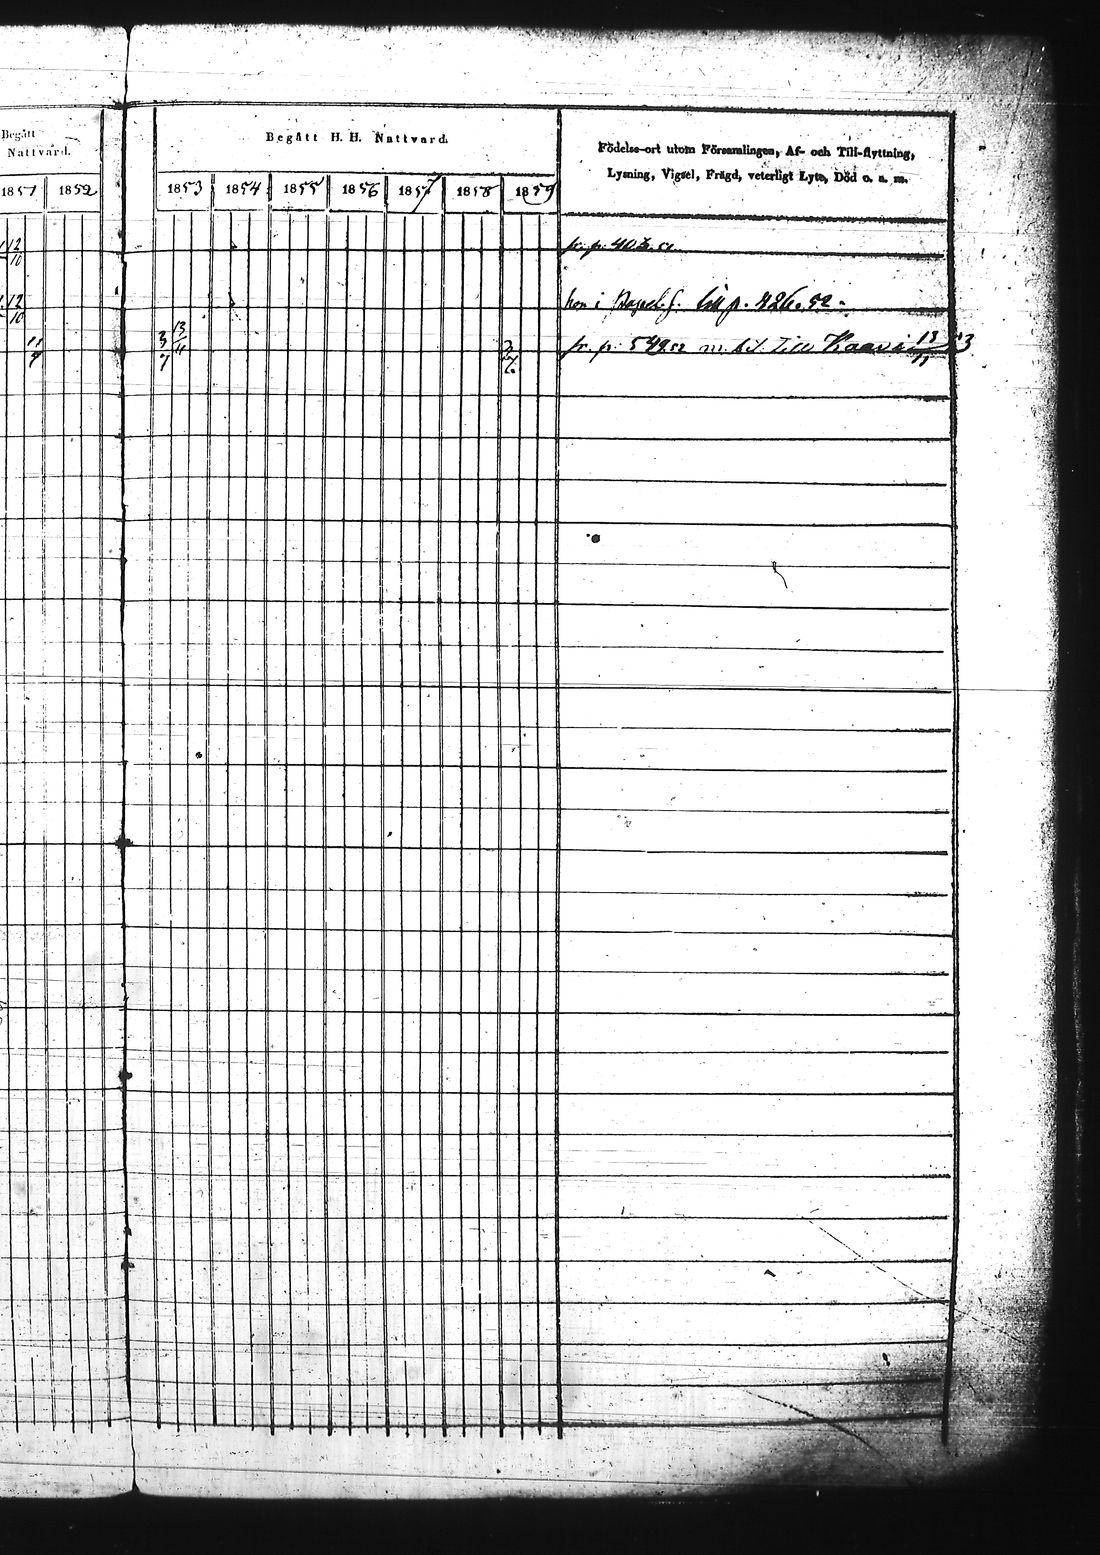 Begått
Nattvard.
1851 1852
Begått H. H. Nattvard.
1853 1854 1855 1856 1857 1858 1859
Födelse-ort utom Församlingen, Af- och Till-flyttning,
Lysning, Vigsel, Frägd, veterligt Lyte, Död o. s. m.
12
10
fr. p. 403.
12
10
hon i till p. 426. 52.
11
9
3
7
13
11
fr. p. 549.52 m. bet. till Kaavi 13
11
53